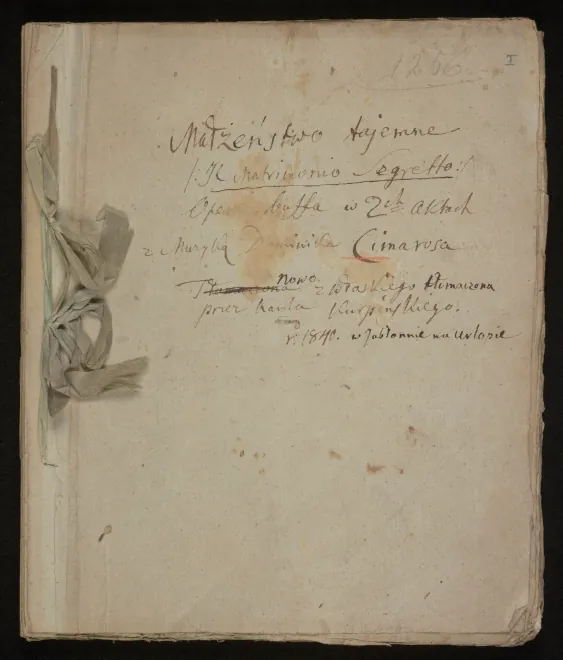 1256
I
Małżeństwo tajemne
/: Il Matrimonio Segretto :/
Opera buffa w 2ch Aktach
z Muzyką Dominika Cimarosa
Tłumaczona nowo z włoskiego tłumaczona
przez Karola Kurpińskiego.
r. 1840. w Jabłonnie na Urlopie